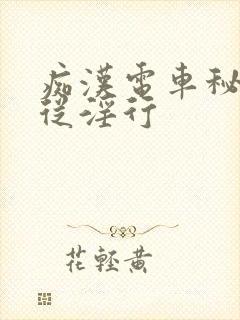 痴漢電車秘
從淫行
花輕黄